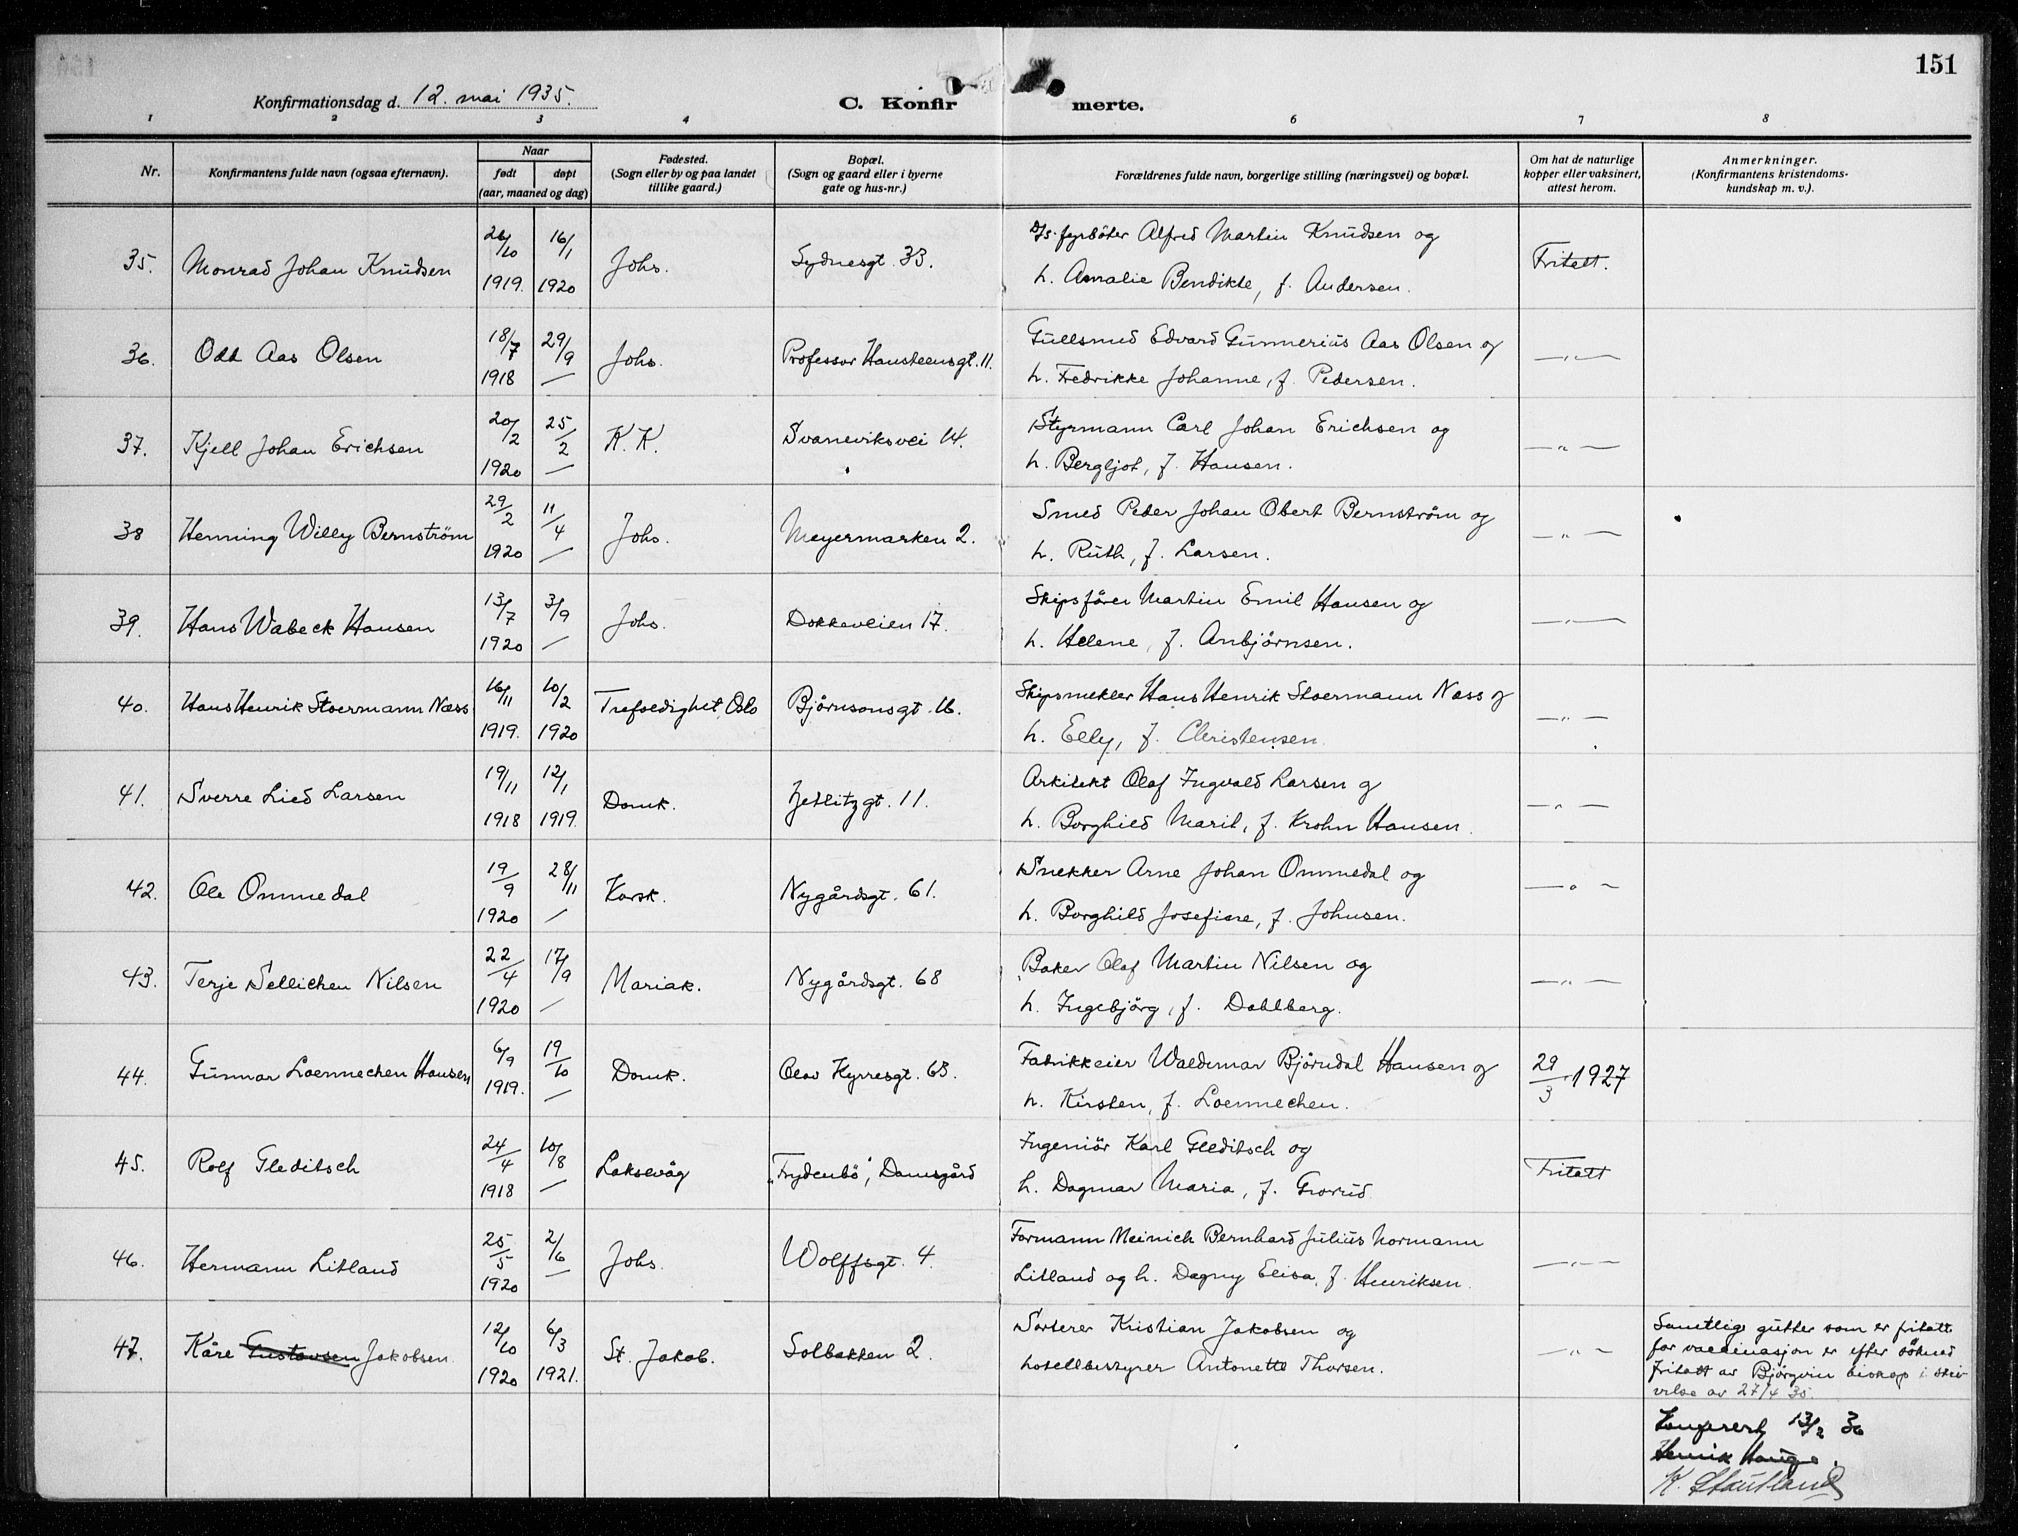 151
Konfirmationsdag d. 12. mai 1935.
C. Konfir merte.
1 2 3 4 6 7 8
Nr.
Konfirmantens fulde navn (ogsaa efternavn).
Naar
født døpt
(aar, maaned og dag)
Fødested.
(Sogn eller by og paa landet
tillike gaard.)
Bopæl.
(Sogn og gaard eller i byerne
gate og hus-nr.)
Forældrenes fulde navn, borgerlige stilling (næringsvei) og bopæl.
Om hat de naturlige
kopper eller vaksinert,
attest herom.
Anmerkninger.
(Konfirmantens kristendoms-
kundskap m. v.).
35. Monrad Johan Knudsen 26/10 1919. 16/1 1920 Johs. Sydnesgt. 33. fyrbøter Alfred Martin Knudsen og
h. Amalie Bendikte, f. Andersen. Fritatt.
36. Odd Aas Olsen 18/7 1918 29/9 — Johs. Professor Hansteensgt. 11. Gullsmed Edvard Gunnerius Aas Olsen og
h. Fredrikke Johanne, f. Pedersen. —"—
37. Kjell Johan Erichsen 20/2 1920 25/2 — K.K. Svaneviksvei 14. Styrmann Carl Johan Erichsen og
h. Bergljot, f. Hansen. —"—
38 Henning Willy Bernstrøm 29/2 1920 11/4 — Johs. Meyermarken 2. Smed Peder Johan Obert Bernstrøm og
h. Ruth, f. Larsen. —"—
39. Hans Wabeck Hansen 13/7 1920 3/9 — Johs. Dokkeveien 17. Skipsfører Martin Emil Hansen og
h. Helene, f. Anbjørnsen. —"—
40. Hans Henrik Stoermann Næss 16/11 1919. 10/2 1920 Trefoldighet, Oslo Bjørnsonsgt. 16. Skipsmekler Hans Henrik Stoermann Næss og
h. Elly, f. Christensen. —"—
41. Sverre Lied Larsen 19/11 1918 12/1 1919. Domk. Zetlitzgt. 11. Arkitekt Olaf Ingvald Larsen og
h. Borghild Marit, f. Krohn Hansen. —"—
42. Ole Ommedal 19/9 1920 28/11 — Korsk. Nygårdsgt. 61. Snekker Arne Johan Ommedal og
h. Borghild Josefine, f. Johnsen. —"—
43. Terje Sellichen Nilsen 22/4 1920 17/9 — Mariak. Nygårdsgt. 68 Baker Olaf Martin Nilsen og
h. Ingebjørg, f. Dahlberg. —"—
44. Gunnar Loennechen Hansen 6/9 1919. 19/10 — Domk. Olav Kyrresgt. 63. Fabrikkeier Waldemar Bjørndal Hansen og
h. Kirsten, f. Loennechen. 29/3 1927
45. Rolf Gleditsch 24/4 1918 10/8 — Laksevåg "Frydenbø", Damsgård Ingeniør Karl Gleditsch og
h. Dagmar Maria, f. Grorud. Fritatt
46. Hermann Litland 25/5 1920 2/6 — Johs. Wolffsgt. 4. Formann Meinich Bernhard Julius Normann
Litland og h. Dagny Elisa, f. Henriksen. —"—
47. Kåre Gustavsen Jakobsen. 12/10 1920 6/3 1921. St. Jakob. Solbakken 2. Sorterer Kristian Jakobsen og
hotellbestyrer Antonette Thorsen. —"—
Samtlige gutter som er fritatt
for vaccinasjon er efter søknad
fritatt av Bjørgvin biskop i skri-
velse av 27/4 35.
13/2 36
Henrik Hauge.
K. Stautland